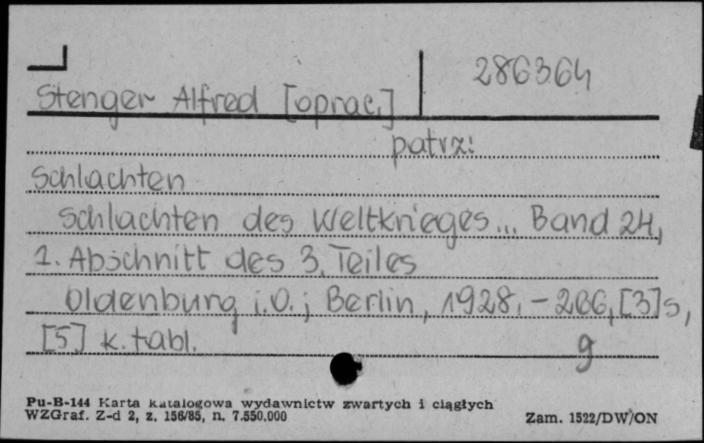 286364
Stenger Alfred [oprac.]
patrz:
Schlachten
Schlachten des Weltkrieges... Band 24,
1. Abschnitt des 3. Teiles
Oldenburg i.O.; Berlin, 1928. - 266, [3] s,
[5] k. tabl.
g
Pu-B-144 Karta katalogowa wydawnictw zwartych i ciągłych
WZGraf. Z-d 2, z. 156/85, n. 7.550.000
Zam. 1522/DW/ON